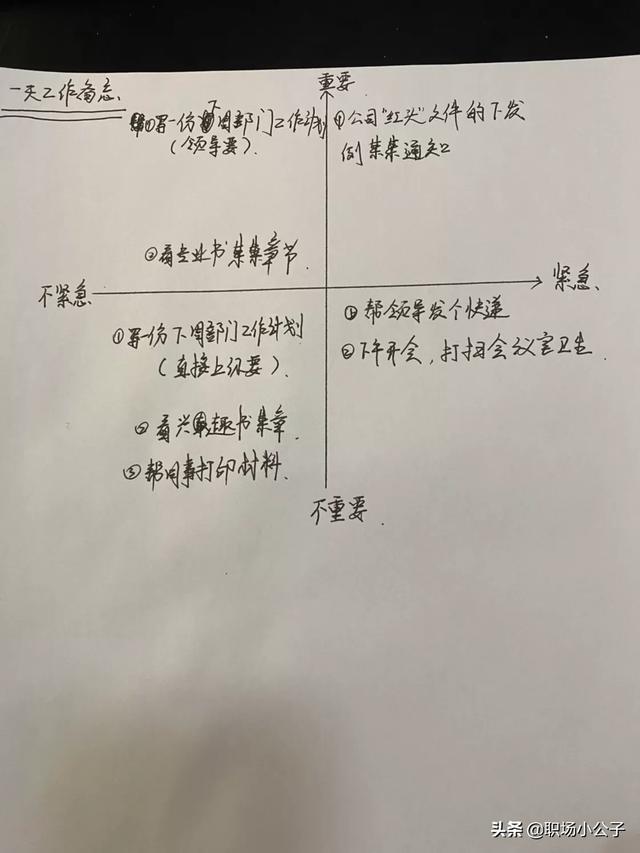 一天工作备忘.
重要
①写一份下周部门工作计划
(领导要).
①公司"红头"文件的下发
例某某通知
②看专业书某某章节.
不紧急
紧急.
①写一份下周部门工作计划
(直接上级要).
②看兴趣书某章.
③帮同事打印材料.
①帮领导发个快递
②下午开会,打扫会议室卫生.
不重要.
头条 @职场小公子